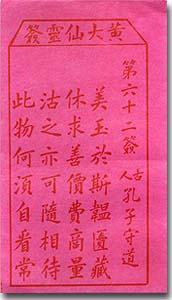 黃大仙靈簽
第六十二簽
古人 孔子守道
美玉於斯韞匱藏
休求善價費商量
沽之亦可隨相待
此物何須自看常